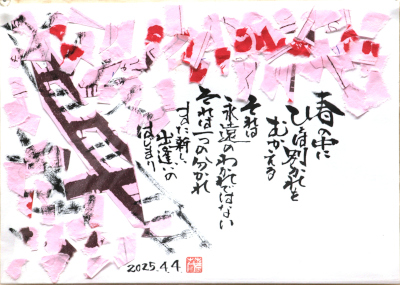 春の中に
ひとは別かれを
むかえる
それは
永遠のわかれではない
それは一つの分かれ
また新しい
出逢いの
はじまり
2025.4.4